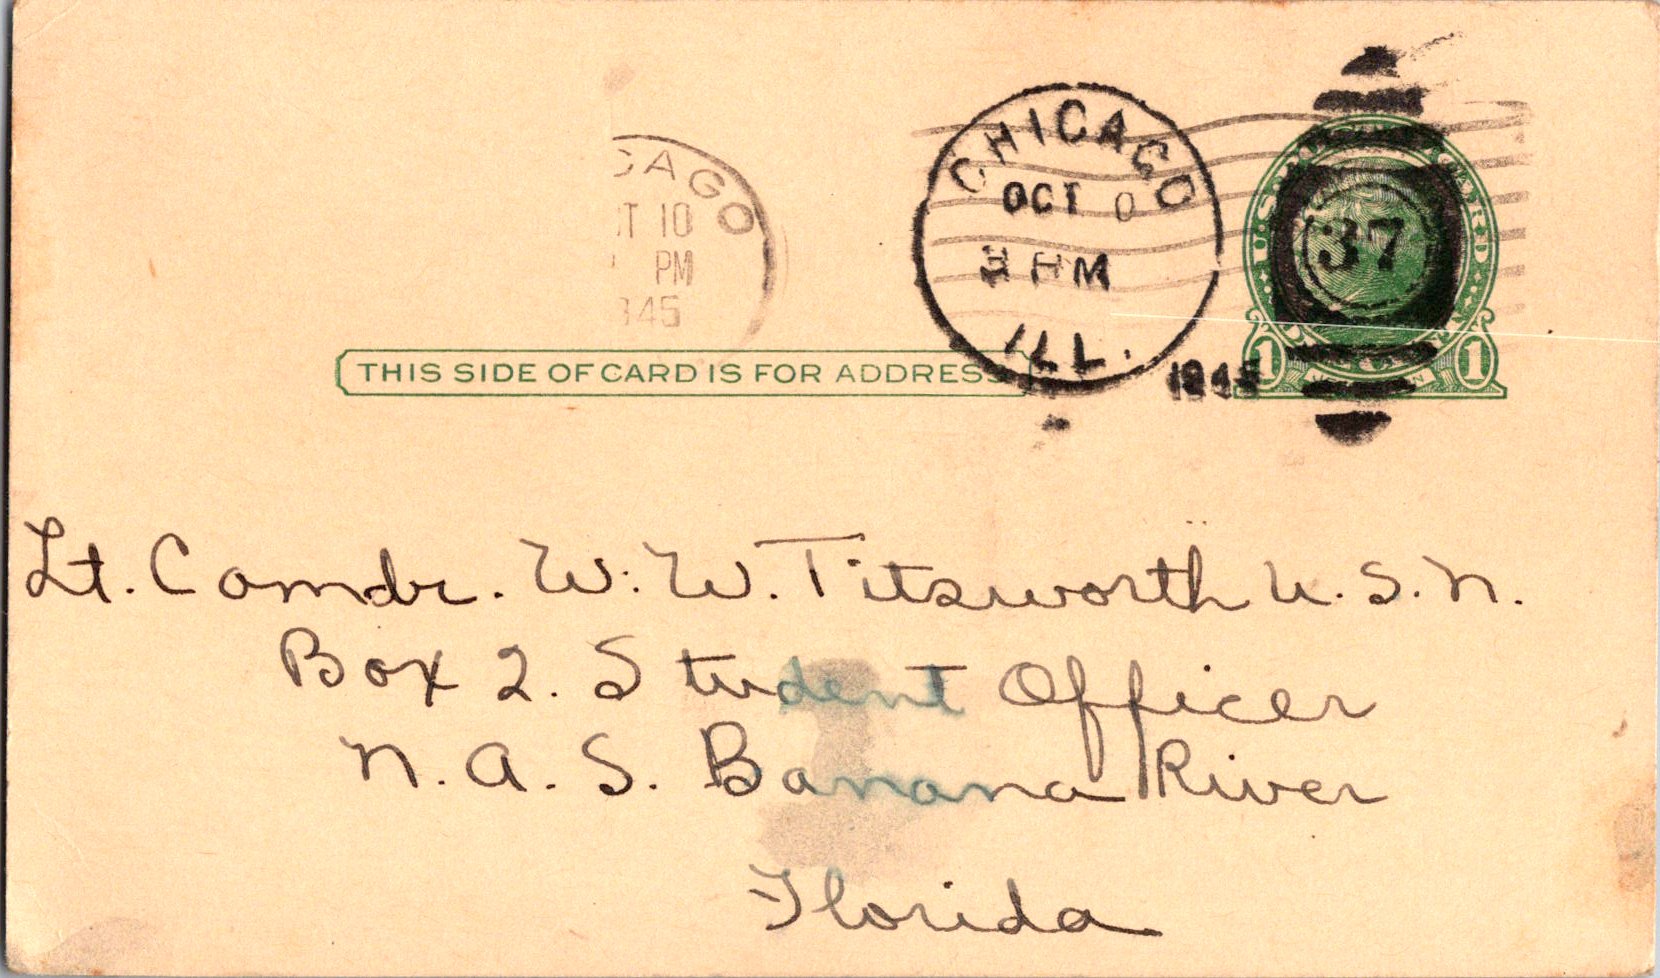 CAGO
CHICAGO
OCT 10
PM
1945
OCT 0
ILL.
1945
37
1 1
THIS SIDE OF CARD IS FOR ADDRESS
Lt. Comdr. W. W. Titsworth U.S.N.
Box 2. Student Officer
N. A. S. Banana River
Florida